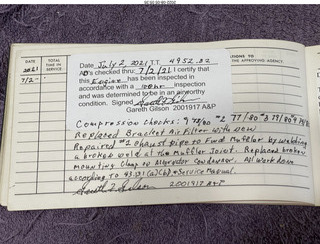 DATE
TOTAL TIME IN SERVICE
2021
7/2
Date July 2, 2021 TT 4952.22
AD's checked thru: 7/2/21 I certify that
this Engine has been inspected in
accordance with a 100hr inspection
and was determined to be in an airworthy
condition. Signed
Gareth Gilson 2001917 A&P
Compression checks: #1 78/80 #2 77/80 #3 79/80 #4
Replaced Bracket Air Filter with new
Repaired #2 exhaust pipe to Fwd Muffler by welding
a broken weld at the Muffler Joint. Replaced broken
mounting Clamp on Alternator Condenser. All work done
according to 43.13-1(A)(b) & Service Manual.
Gareth Gilson 2001917 A&P